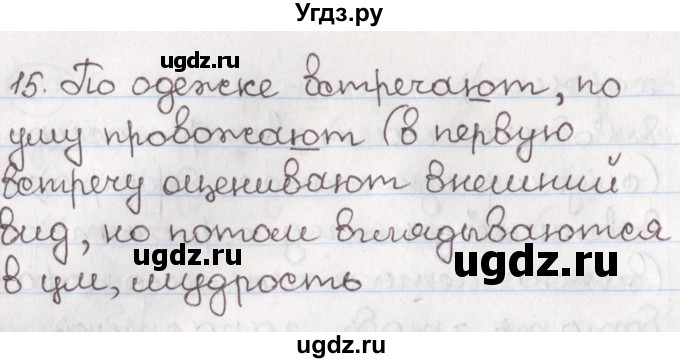 Угдз.ру
gdz.ru
gdz.ru
15. По одежке встречают, по
уму провожают (в первую
встречу оценивают внешний
gdz.ru
вид, но потом вглядываются
ugdz.ru
ugdz.ru
в ум, мудрость
ugdz.ru
ugdz.ru